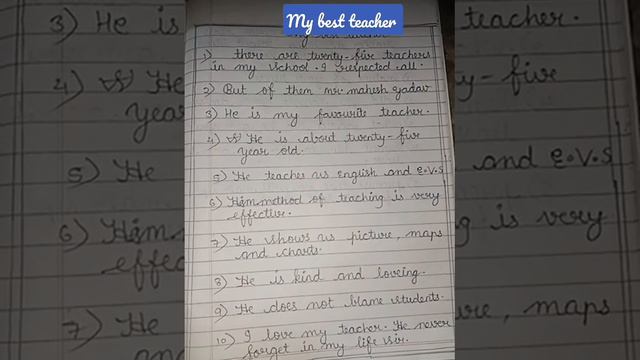 My best teacher
1) there are twenty-five teachers
in my school. I respected all.
2) But of them mr. mahesh yadav
3) He is my favourite teacher.
4) He is about twenty-five
year old.
5) He teaches us English and E.V.S
6) Him method of teaching is very
effective.
7) He shows us picture, maps
and charts.
8) He is kind and loveing.
9) He does not blame students.
10) I love my teacher. He never
forget in my life sir.
3) He is
teacher.
4) He
year
ty-five
5) He
and E.V.S
6) Him
effec
ng is very
7) He
ure, maps
an